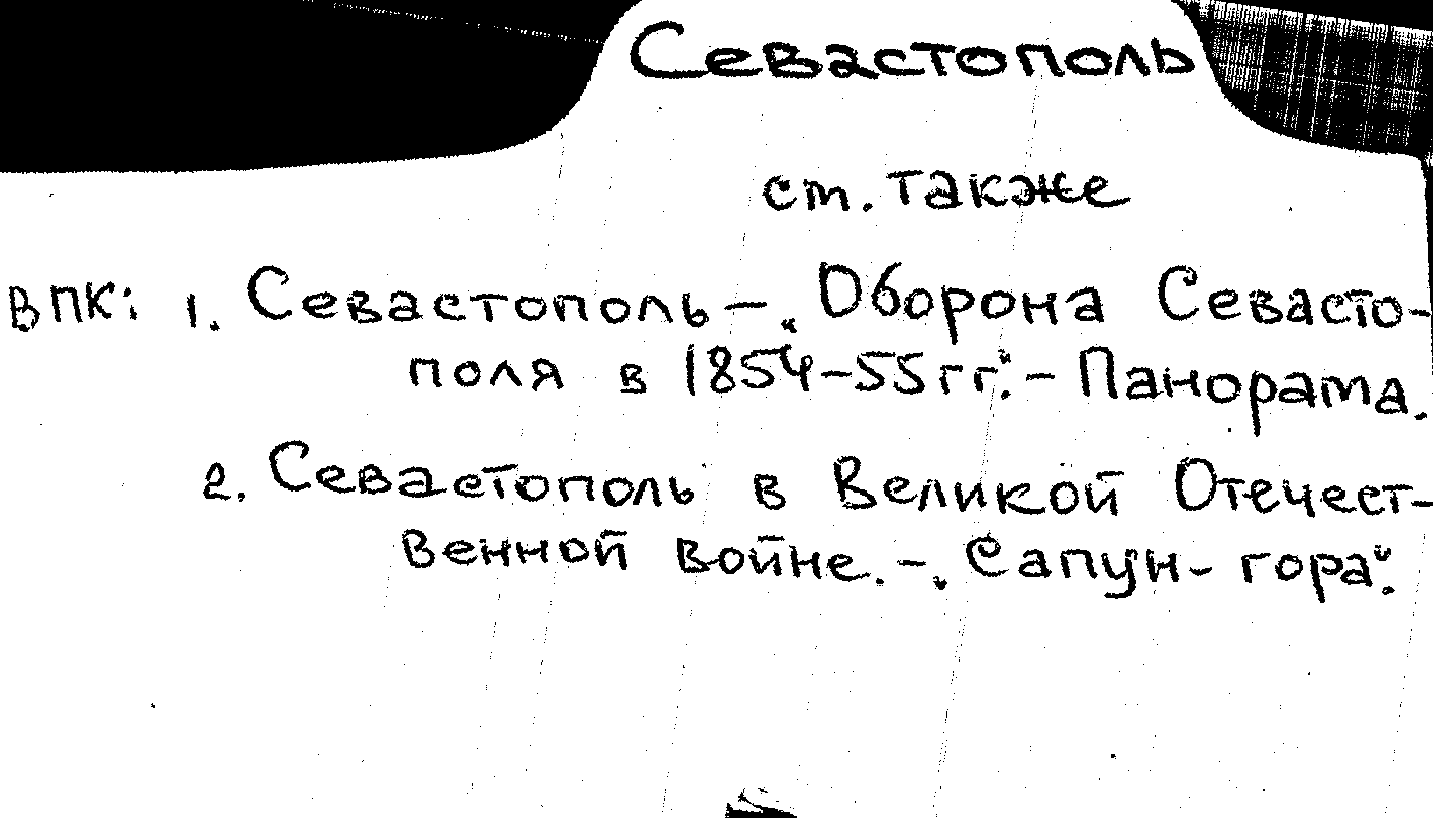 Севастополь
см. также
ВПК: 1. Севастополь – "Оборона Севасто-
поля в 1854–55 гг." – Панорама.
2. Севастополь в Великой Отечест-
венной войне. – "Сапун-гора".